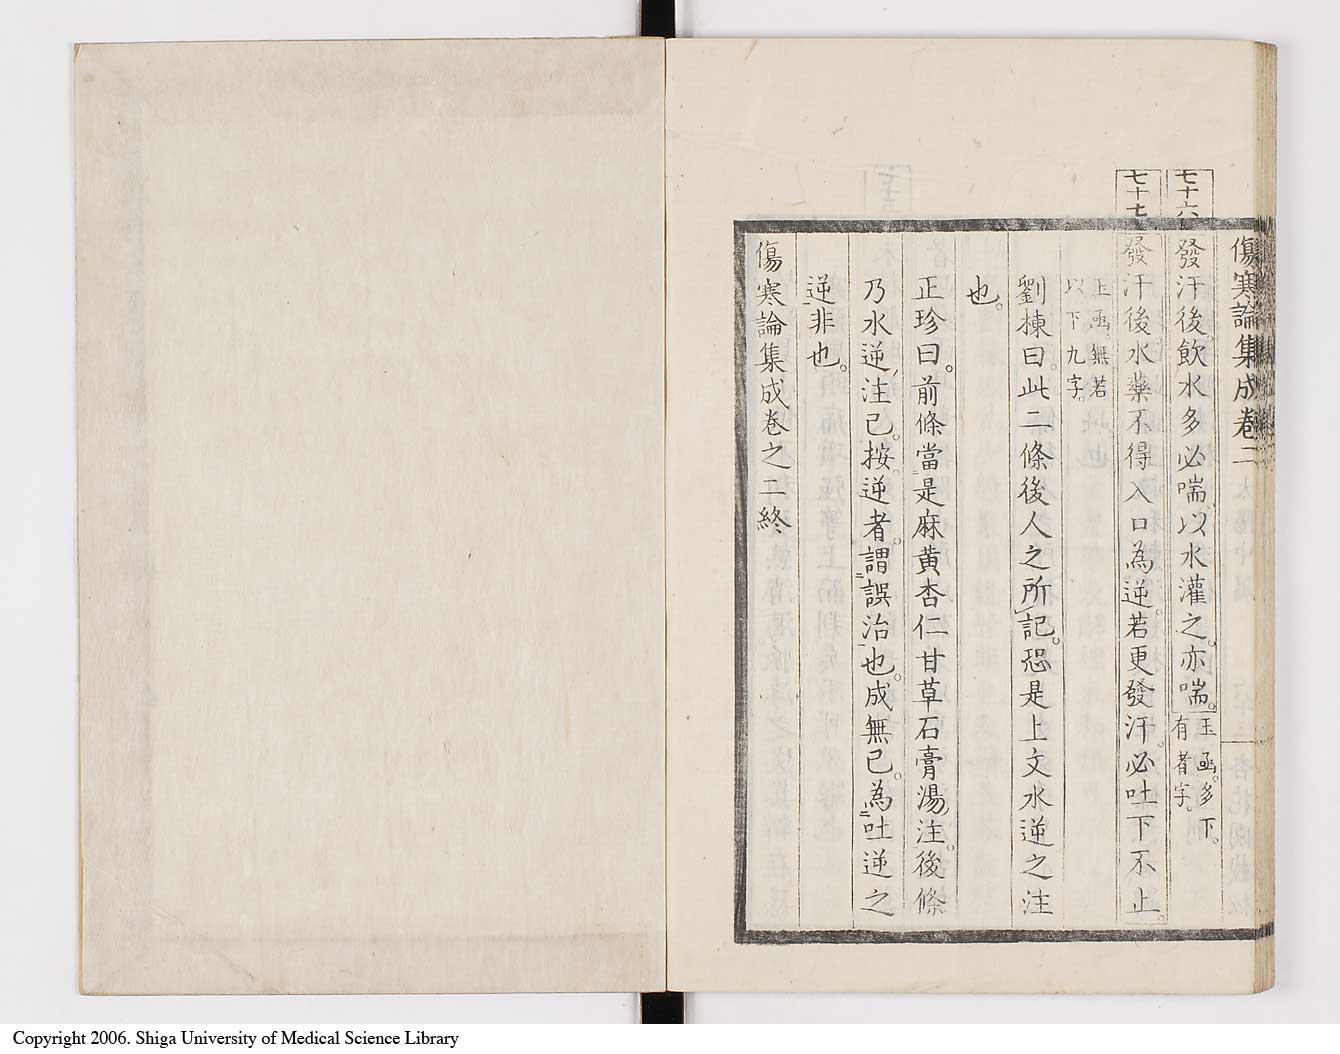 傷寒論集成卷二
七十六
發汗後。飲水多必喘。以水灌之。亦喘。玉函。多下。有者字。
七十七
發汗後水藥不得入口為逆。若更發汗。必吐下不止。
玉函。無若以下九字。
劉棟曰。此二條後人之所記。恐是上文水逆之注
也。
正珍曰。前條當是麻黄杏仁甘草石膏湯注。後條
乃水逆注已。按逆者。謂誤治也。成無已。為吐逆之
逆非也。
傷寒論集成卷之二終
Copyright 2006. Shiga University of Medical Science Library